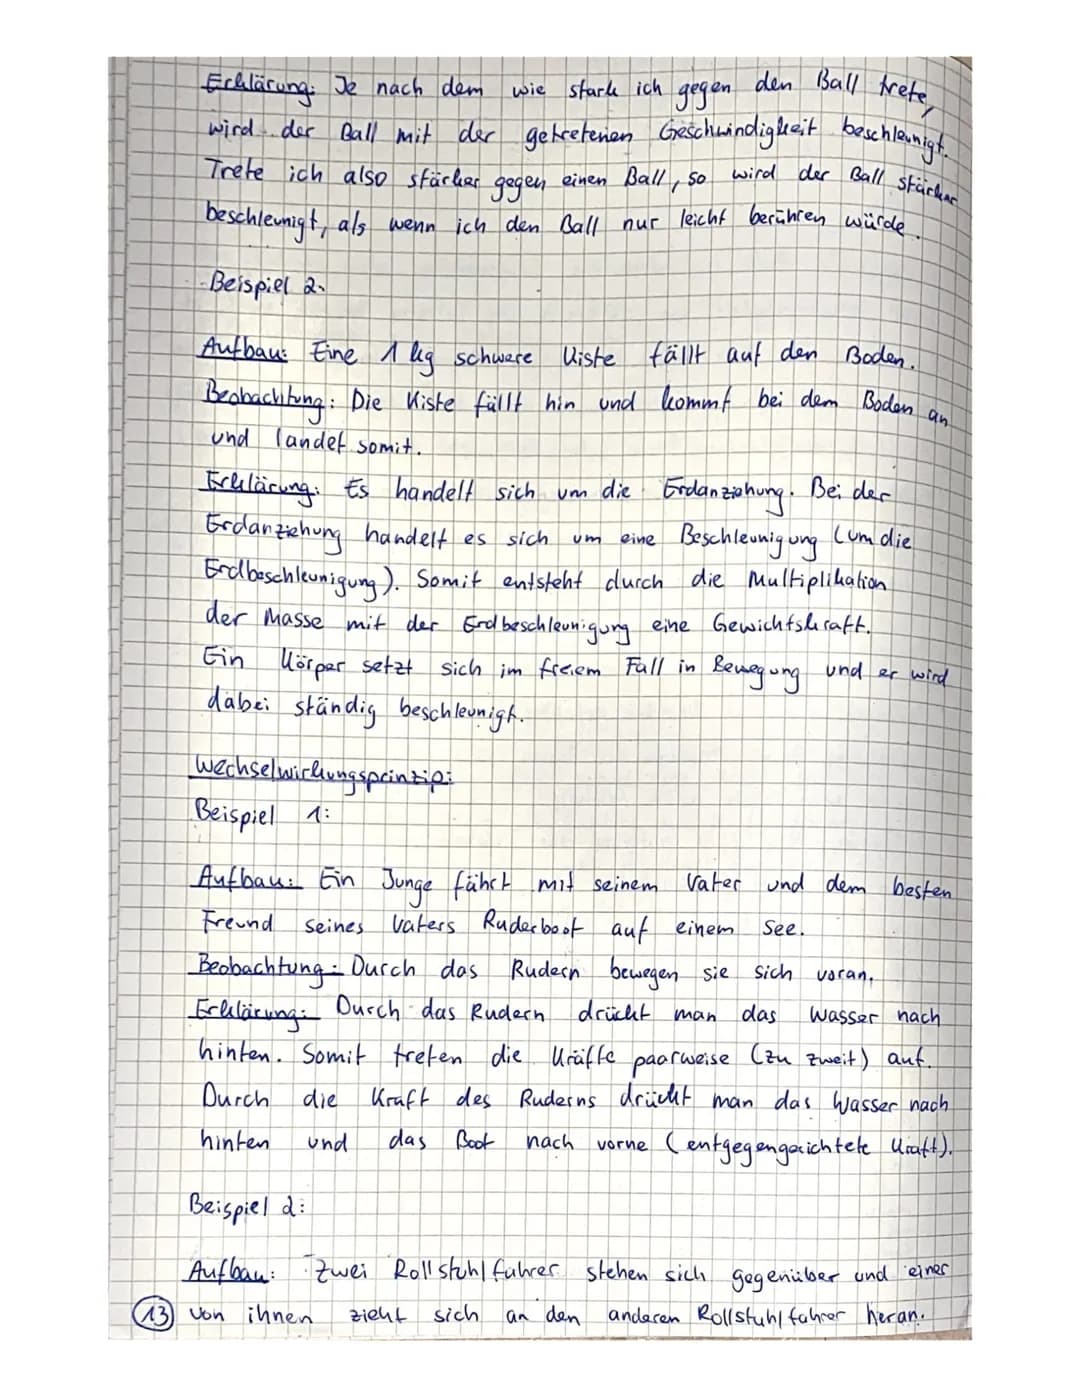 Erklärung: Je nach dem wie stark ich gegen den Ball trete,
wird der Ball mit der getretenen Geschwindigkeit beschleunigt.
Trete ich also stärker gegen einen Ball, so wird der Ball stärker
beschleunigt, als wenn ich den Ball nur leicht berühren würde.
Beispiel 2:
Aufbau: Eine 1 kg schwere Kiste fällt auf den Boden.
Beobachtung: Die Kiste fällt hin und kommt bei dem Boden an
und landet somit.
Erklärung: Es handelt sich um die Erdanziehung. Bei der
Erdanziehung handelt es sich um eine Beschleunigung (um die
Erdbeschleunigung). Somit entsteht durch die Multiplikation
der Masse mit der Erdbeschleunigung eine Gewichtskraft.
Ein Körper setzt sich im freiem Fall in Bewegung und er wird
dabei ständig beschleunigt.
Wechselwirkungsprinzip:
Beispiel 1:
Aufbau: Ein Junge fährt mit seinem Vater und dem besten
Freund seines Vaters Ruderboot auf einem See.
Beobachtung: Durch das Rudern bewegen sie sich voran.
Erklärung: Durch das Rudern drückt man das Wasser nach
hinten. Somit treten die Kräfte paarweise (zu zweit) auf.
Durch die Kraft des Ruderns drückt man das Wasser nach
hinten und das Boot nach vorne (entgegengerichtete Kraft).
Beispiel 2:
Aufbau: Zwei Rollstuhlfahrer stehen sich gegenüber und einer
13 von ihnen zieht sich an den anderen Rollstuhlfahrer heran.